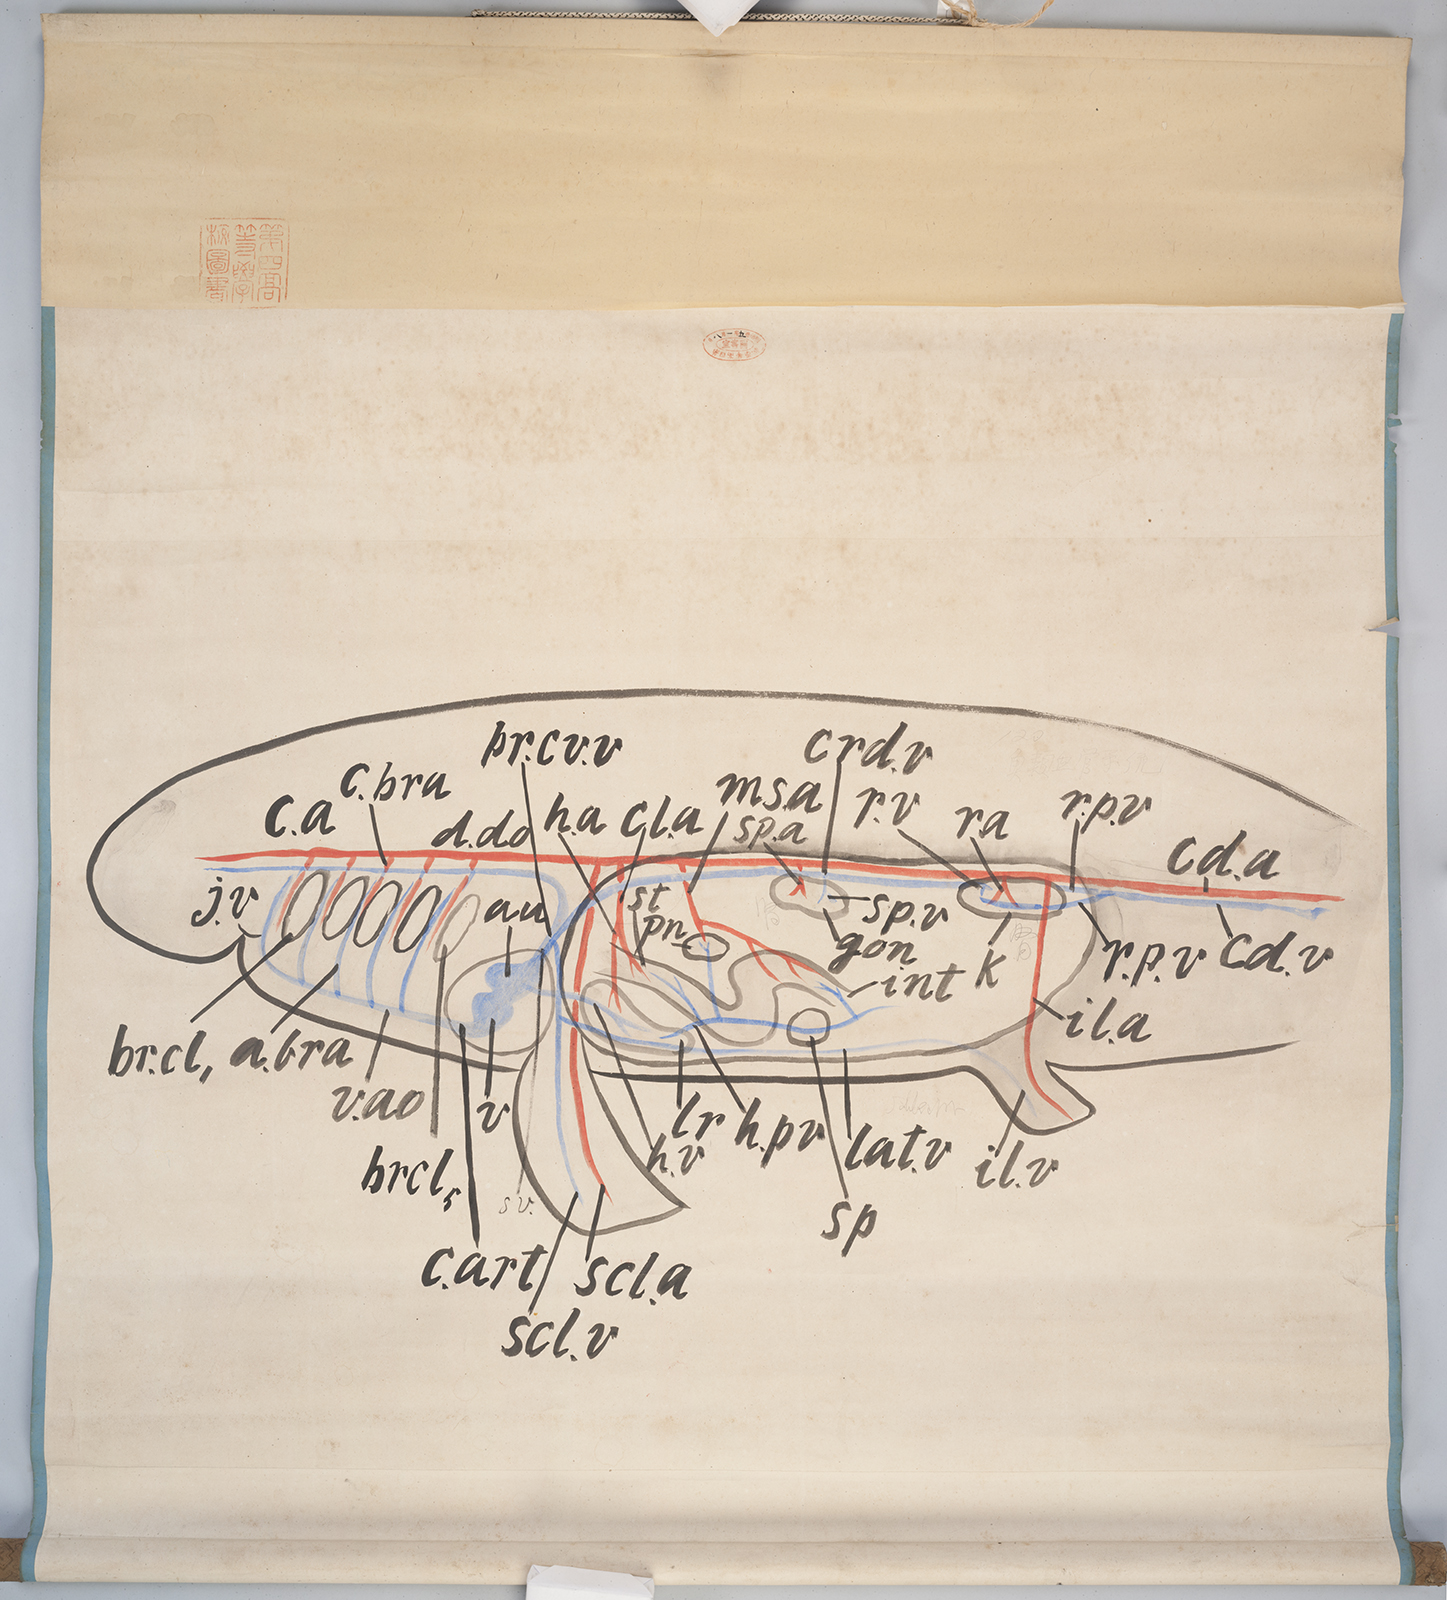 第四高
等學
校圖書
pr.cv.v
crd.v
c.bra
ms.a
r.v
r.p.v
c.a
d.do
h.a
cl.a
sp.a
ra
cd.a
j.v
au
st
pn
sp.v
gon
int
k
r.p.v
cd.v
il.a
br.cl,
a.bra
v.ao
v
lr
h.pv
h.v
lat.v
il.v
brcl5
s v.
sp
c.art
scl.a
scl.v